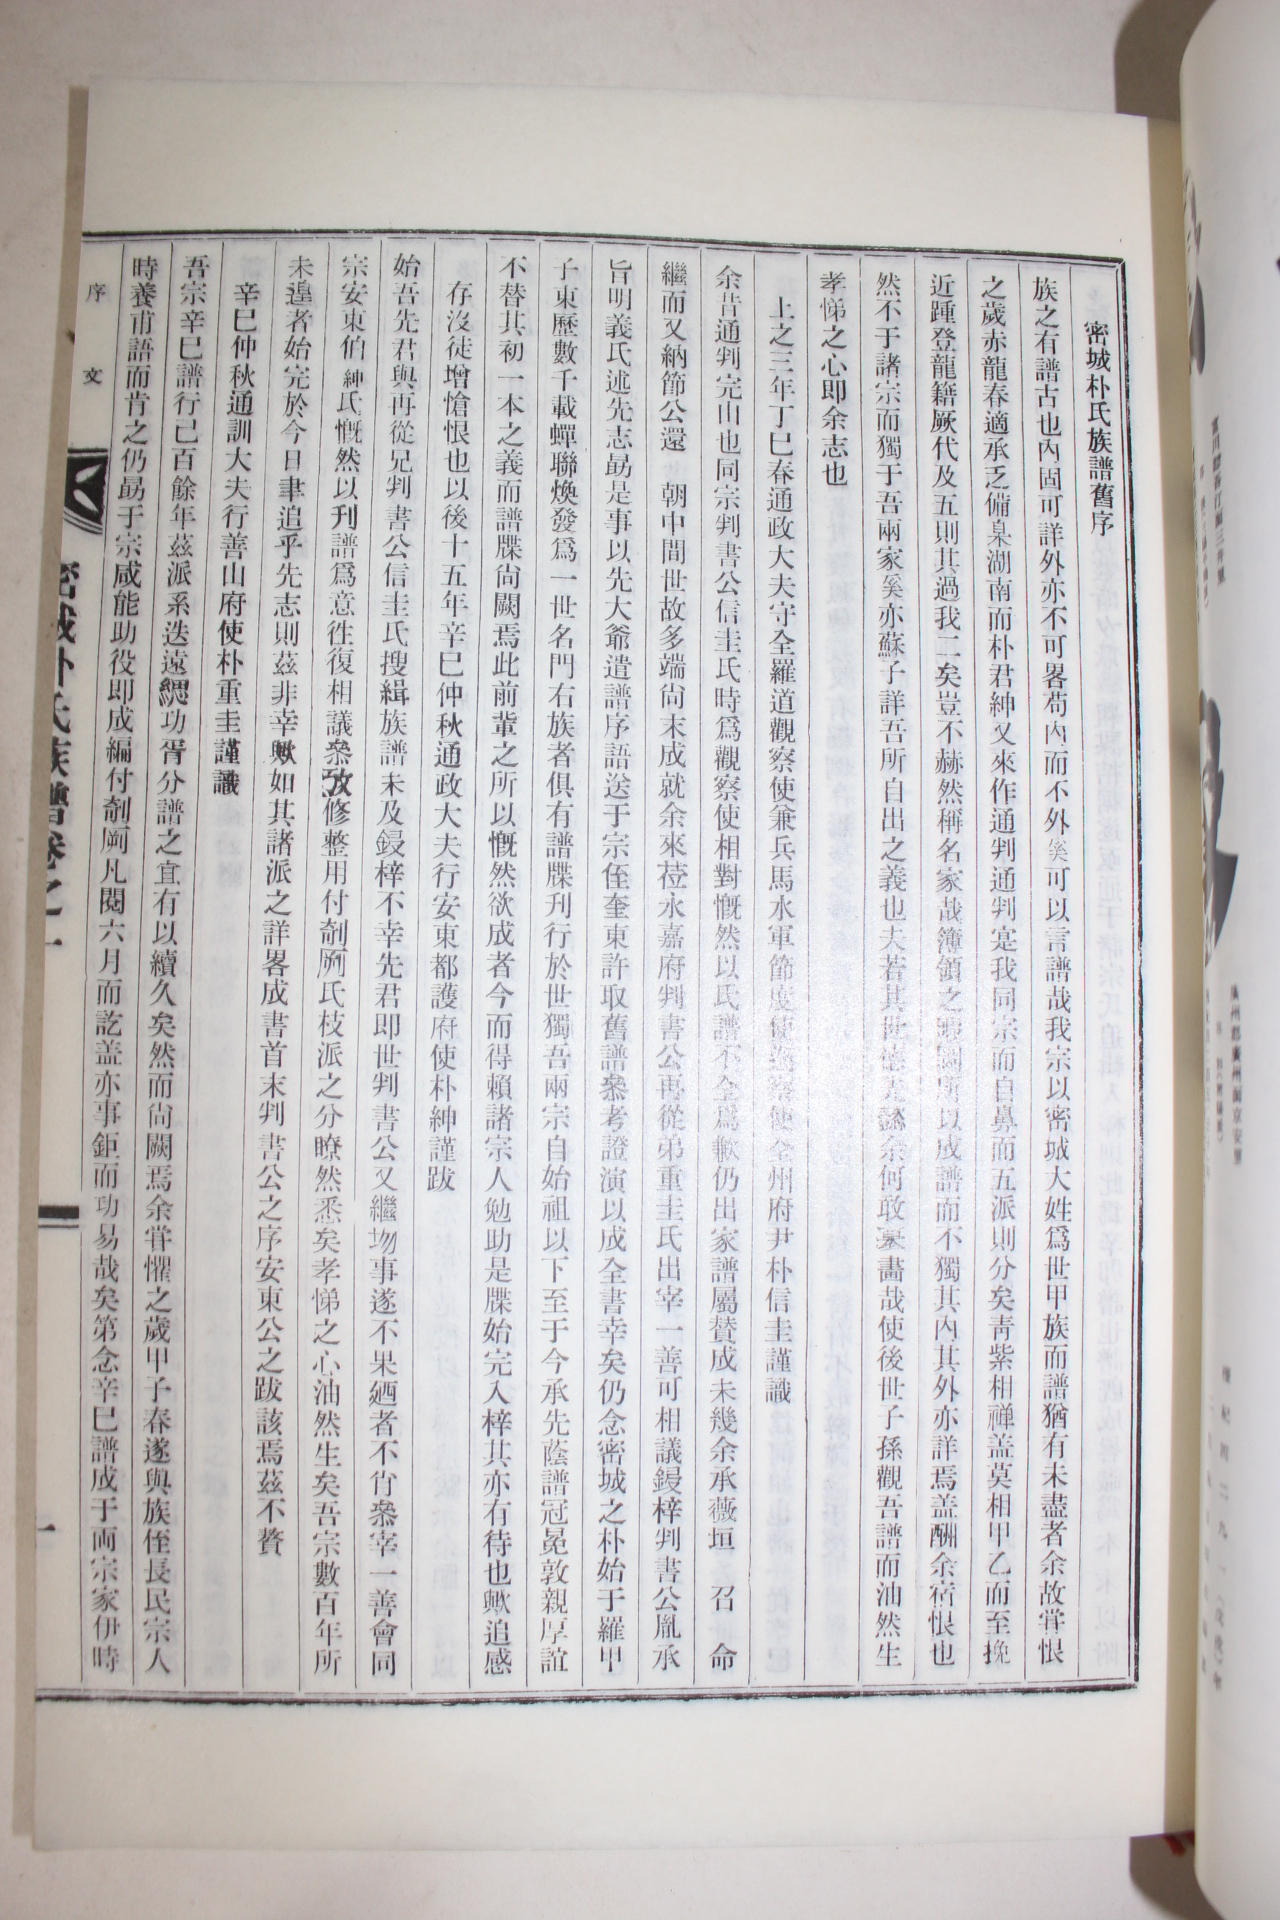 密城朴氏族譜舊序
族之有譜古也內固可詳外亦不可畧苟內而不外奚可以言譜哉我宗以密城大姓爲世甲族而譜猶有未盡者余故甞恨
之歲赤龍春適承乏備臬湖南而朴君紳又來作通判通判寔我同宗而自鼻而五派則分矣靑紫相禅盖莫相甲乙而至挽
近踵登龍籍厥代及五則其過我二矣豈不赫然稱名家哉簿領之暇圖所以成譜而不獨其內其外亦詳焉盖酬余宿恨也
然不于諸宗而獨于吾兩家奚亦蘇子詳吾所自出之義也夫若其世德先懿余何敢䝉畵哉使後世子孫觀吾譜而油然生
孝悌之心即余志也
上之三年丁巳春通政大夫守全羅道觀察使兼兵馬水軍節度使巡察使全州府尹朴信圭謹識
余昔通判完山也同宗判書公信圭氏時爲觀察使相對慨然以氏譜不全爲歉仍出家譜屬賛成未幾余承薇垣 召 命
繼而又納節公還 朝中間世故多端尙未成就余來莅永嘉府判書公再從弟重圭氏出宰一善可相議鋟梓判書公胤承
旨明義氏述先志勗是事以先大爺遣譜序語送于宗侄奎東許取舊譜叅考證演以成全書幸矣仍念密城之朴始于羅甲
子東歷數千載蟬聯煥發爲一世名門右族者俱有譜牒刊行於世獨吾兩宗自始祖以下至于今承先蔭譜冠冕敦親厚誼
不替其初一本之義而譜牒尙闕焉此前輩之所以慨然欲成者今而得賴諸宗人勉助是牒始完入梓其亦有待也歟追感
存沒徒增愴恨也以後十五年辛巳仲秋通政大夫行安東都護府使朴紳謹跋
始吾先君與再從兄判書公信圭氏搜緝族譜未及鋟梓不幸先君即世判書公又繼圽事遂不果廼者不肖叅宰一善會同
宗安東伯紳氏慨然以刊譜爲意徃復相議叅攷修整用付剞劂氏枝派之分瞭然悉矣孝悌之心油然生矣吾宗數百年所
未遑者始完於今日聿追乎先志則茲非幸歟如其諸派之詳畧成書首末判書公之序安東公之跋該焉茲不贅
辛巳仲秋通訓大夫行善山府使朴重圭謹識
吾宗辛巳譜行已百餘年茲派系迭遠緦功胥分譜之宜有以續久矣然而尙闕焉余甞懼之歲甲子春遂與族侄長民宗人
時養甫語而肯之仍勗于宗咸能助役即成編付剞劂凡閱六月而訖盖亦事鉅而功易哉矣第念辛巳譜成于兩宗家伊時
序文
密城朴氏族譜卷之一
一